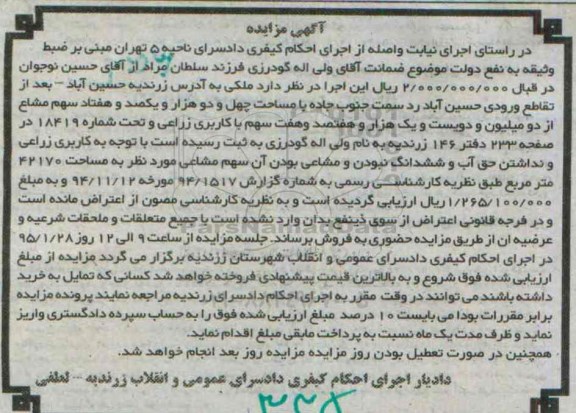 آگهی مزایده
در راستای اجرای نیابت واصله از اجرای احکام کیفری دادسرای ناحیه ۵ تهران مبنی بر ضبط
وثیقه به نفع دولت موضوع ضمانت آقای ولی اله گودرزی فرزند سلطان مراد از آقای حسین نوجوان
در قبال ۲/۰۰۰/۰۰۰/۰۰۰ ریال این اجرا در نظر دارد ملکی به آدرس زرندیه حسین آباد – بعد از
تقاطع ورودی حسین آباد رد سمت جنوب جاده با مساحت چهل و دو هزار و یکصد و هفتاد سهم مشاع
از دو میلیون و دویست و یک هزار و هفتصد وهفت سهم با کاربری زراعی و تحت شماره ۱۸۴۱۹ در
صفحه ۲۳۳ دفتر ۱۴۶ زرندیه به نام ولی اله گودرزی به ثبت رسیده است با توجه به کاربری زراعی
و نداشتن حق آب و ششدانگ نبودن و مشاعی بودن آن سهم مشاعی مورد نظر به مساحت ۴۲۱۷۰
متر مربع طبق نظریه کارشناسی رسمی به شماره گزارش ۹۴/۱۵۱۷ مورخه ۹۴/۱۱/۱۲ و به مبلغ
۱/۲۶۵/۱۰۰/۰۰۰ریال ارزیابی گردیده است و به نظریه کارشناسی مصون از اعتراض مانده است
و در فرجه قانونی اعتراض از سوی ذینفع بدان وارد نشده است با جمیع متعلقات و ملحقات شرعیه و
عرضیه ان از طریق مزایده حضوری به فروش برساند. جلسه مزایده از ساعت ۹ الی ۱۲ روز ۹۵/۱/۲۸
در اجرای احکام کیفری دادسرای عمومی و انقلاب شهرستان زرندیه برگزار می گردد مزایده از مبلغ
ارزیابی شده فوق شروع و به بالاترین قیمت پیشنهادی فروخته خواهد شد کسانی که تمایل به خرید
داشته باشند می توانند در وقت مقرر به اجرای احکام دادسرای زرندیه مراجعه نمایند پرونده مزایده
برابر مقررات بودا می بایست ۱۰ درصد مبلغ ارزیابی شده فوق را به حساب سپرده دادگستری واریز
نماید و ظرف مدت یک ماه نسبت به پرداخت مابقی مبلغ اقدام نماید.
همچنین در صورت تعطیل بودن روز مزایده مزایده روز بعد انجام خواهد شد.
دادیار اجرای احکام کیفری دادسرای عمومی و انقلاب زرندیه – لطفی